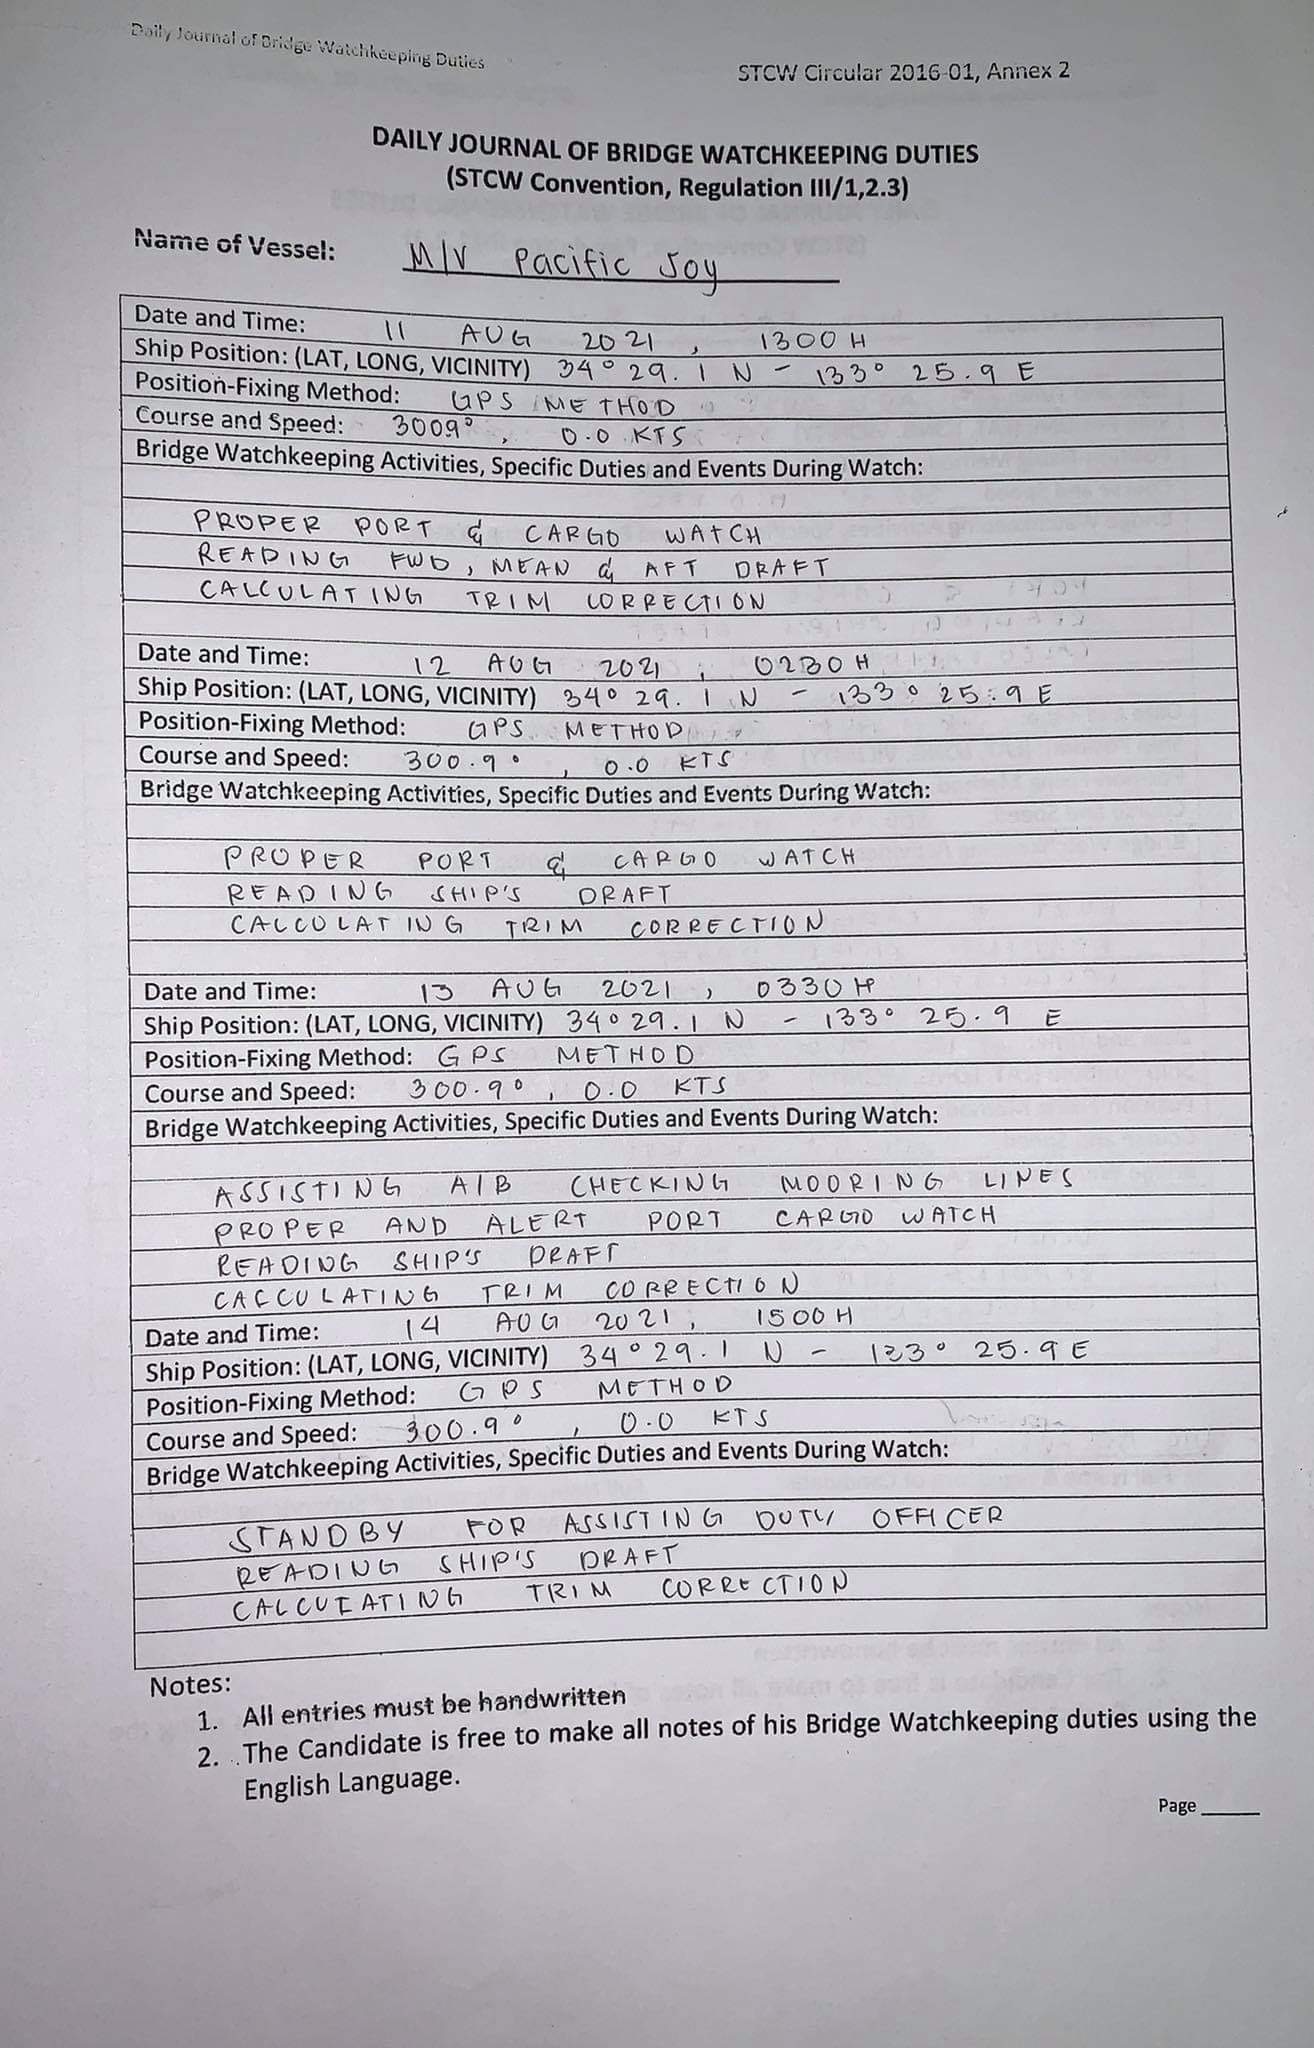 Daily Journal of Bridge Watchkeeping Duties
STCW Circular 2016-01, Annex 2
DAILY JOURNAL OF BRIDGE WATCHKEEPING DUTIES
(STCW Convention, Regulation III/1,2.3)
Name of Vessel: M/V Pacific Joy
Date and Time: 11 AUG 2021, 1300 H
Ship Position: (LAT, LONG, VICINITY) 34° 29.1 N - 133° 25.9 E
Position-Fixing Method: GPS METHOD
Course and Speed: 300.9°, 0.0 KTS
Bridge Watchkeeping Activities, Specific Duties and Events During Watch:
PROPER PORT & CARGO WATCH
READING FWD, MEAN & AFT DRAFT
CALCULATING TRIM CORRECTION
Date and Time: 12 AUG 2021, 0230 H
Ship Position: (LAT, LONG, VICINITY) 34° 29.1 N - 133° 25.9 E
Position-Fixing Method: GPS METHOD
Course and Speed: 300.9°, 0.0 KTS
Bridge Watchkeeping Activities, Specific Duties and Events During Watch:
PROPER PORT & CARGO WATCH
READING SHIP'S DRAFT
CALCULATING TRIM CORRECTION
Date and Time: 13 AUG 2021, 0330 H
Ship Position: (LAT, LONG, VICINITY) 34° 29.1 N - 133° 25.9 E
Position-Fixing Method: GPS METHOD
Course and Speed: 300.9°, 0.0 KTS
Bridge Watchkeeping Activities, Specific Duties and Events During Watch:
ASSISTING A/B CHECKING MOORING LINES
PROPER AND ALERT PORT CARGO WATCH
READING SHIP'S DRAFT
CALCULATING TRIM CORRECTION
Date and Time: 14 AUG 2021, 1500 H
Ship Position: (LAT, LONG, VICINITY) 34° 29.1 N - 133° 25.9 E
Position-Fixing Method: GPS METHOD
Course and Speed: 300.9°, 0.0 KTS
Bridge Watchkeeping Activities, Specific Duties and Events During Watch:
STANDBY FOR ASSISTING DUTY OFFICER
READING SHIP'S DRAFT
CALCULATING TRIM CORRECTION
Notes:
1. All entries must be handwritten
2. The Candidate is free to make all notes of his Bridge Watchkeeping duties using the
English Language.
Page